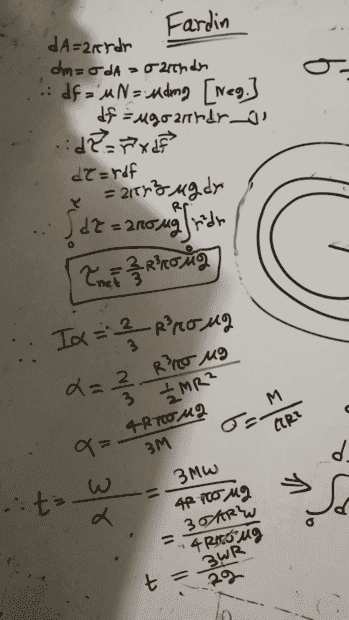 Fardin
dA = 2πrdr
dm = σdA = σ2πrdr
∴ df = μN = μdmg [Neg.]
df = μgσ2πrdr —①
∴ dτ⃗ = r⃗ × df⃗
dτ = rdf
= 2πr²σμgdr
∴ ∫₀^τ dτ = 2πσμg ∫₀^R r²dr
τnet = 2/3 R³πσμg
∴ Iα = 2/3 R³πσμg
α = 2/3 R³πσμg / ½MR²
α = 4Rπσμg / 3M
σ = M/πR²
∴ t = ω/α = 3Mω / 4Rπσμg
= 3σπR²ω / 4Rπσμg
t = 3ωR / 2g
σ =
⇒ ∫₀